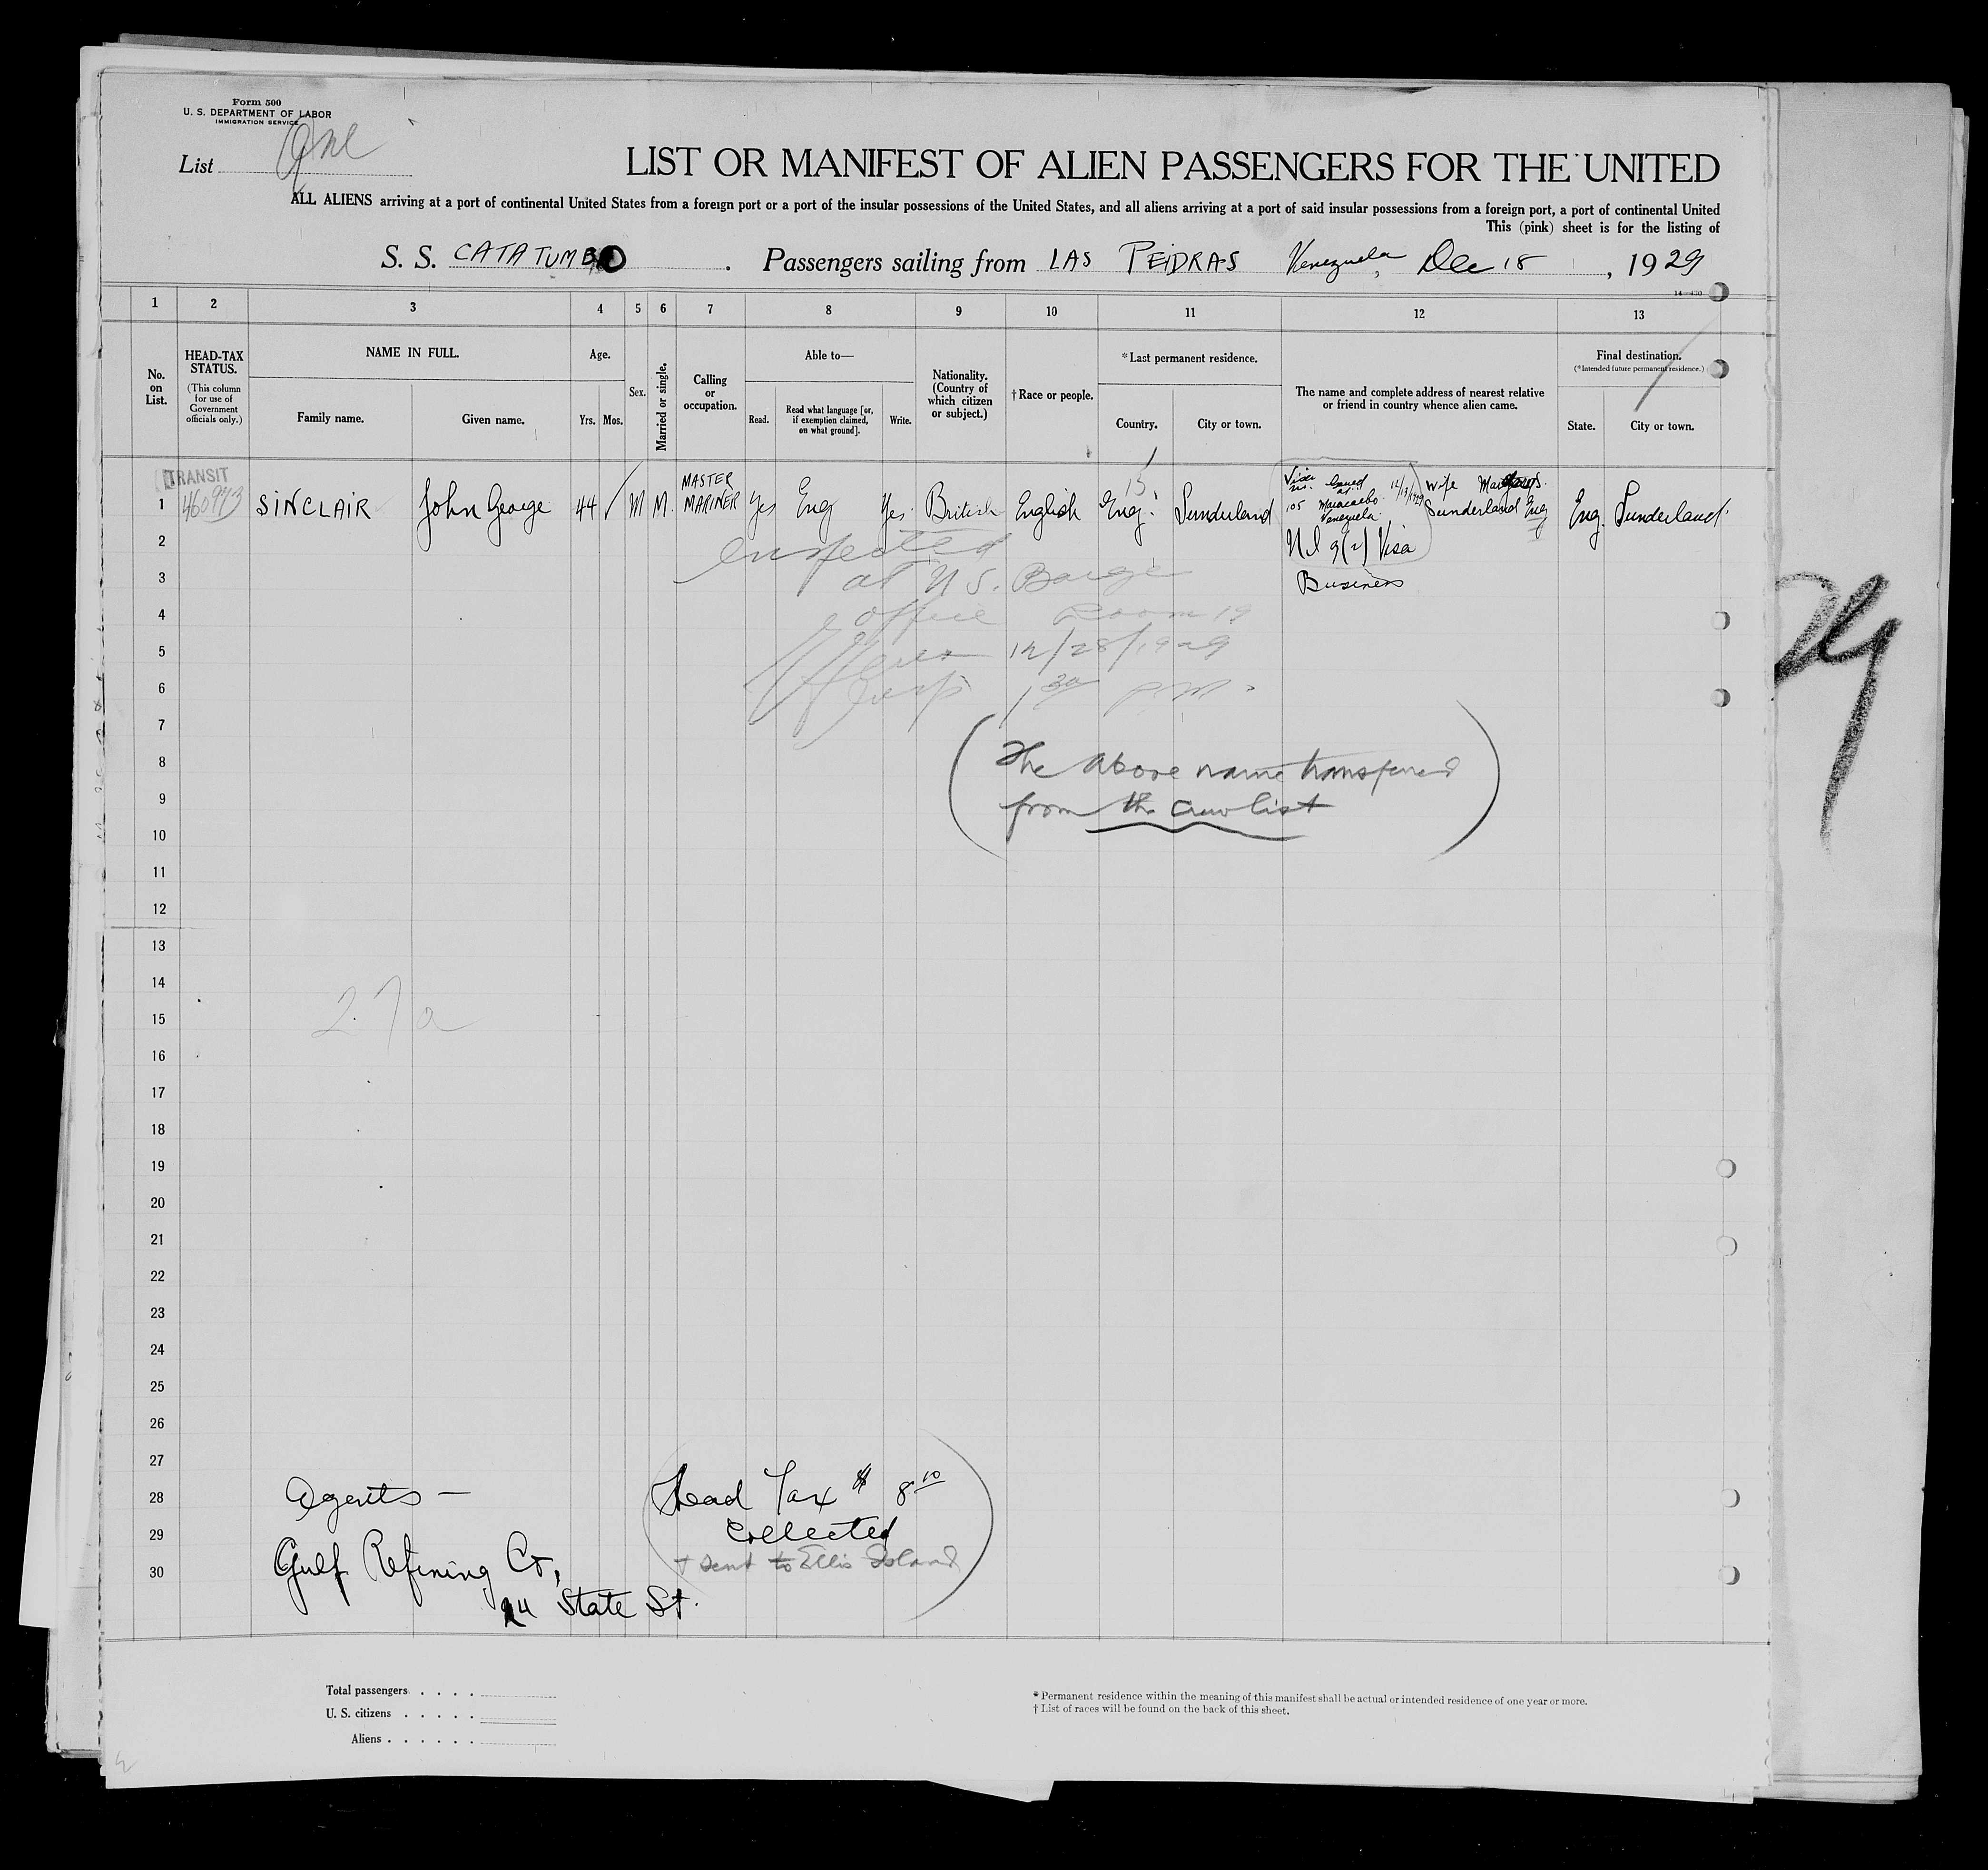 Form 500
U. S. DEPARTMENT OF LABOR
IMMIGRATION SERVICE
List One
LIST OR MANIFEST OF ALIEN PASSENGERS FOR THE UNITED
ALL ALIENS arriving at a port of continental United States from a foreign port or a port of the insular possessions of the United States, and all aliens arriving at a port of said insular possessions from a foreign port, a port of continental United
This (pink) sheet is for the listing of
S. S. CATATUMBO . Passengers sailing from LAS PEIDRAS Venezuela, Dec 18, 1929
1 2 3 4 5 6 7 8 9 10 11 12 13
No. on List.
HEAD-TAX STATUS.
(This column for use of Government officials only.)
NAME IN FULL.
Family name. Given name.
Age.
Yrs. Mos.
Sex.
Married or single.
Calling or occupation.
Able to—
Read. Read what language [or, if exemption claimed, on what ground]. Write.
Nationality. (Country of which citizen or subject.)
†Race or people.
*Last permanent residence.
Country. City or town.
The name and complete address of nearest relative or friend in country whence alien came.
Final destination.
(*Intended future permanent residence.)
State. City or town.
TRANSIT
1 SINCLAIR John George 44 M M. MASTER MARINER Yes Eng Yes British English Eng. Sunderland
15
Issued at
105 Maracaibo
Venezuela
Visa
Business
Wife
Sunderland Eng
Eng. Sunderland
2
3
4
5
6
7
8
9
10
11
12
13
14
15
16
17
18
19
20
21
22
23
24
25
26
27
28
29
30
inspected
at U S. Barge
office Room 19
12/28/1929
1 30 P.M.
(The above name transfered
from the crew list)
27a
Agents —
Gulf Refining Co,
24 State St.
Head Tax $ 8 10
collected
+ sent to Ellis Island
Total passengers
U. S. citizens
Aliens
* Permanent residence within the meaning of this manifest shall be actual or intended residence of one year or more.
† List of races will be found on the back of this sheet.